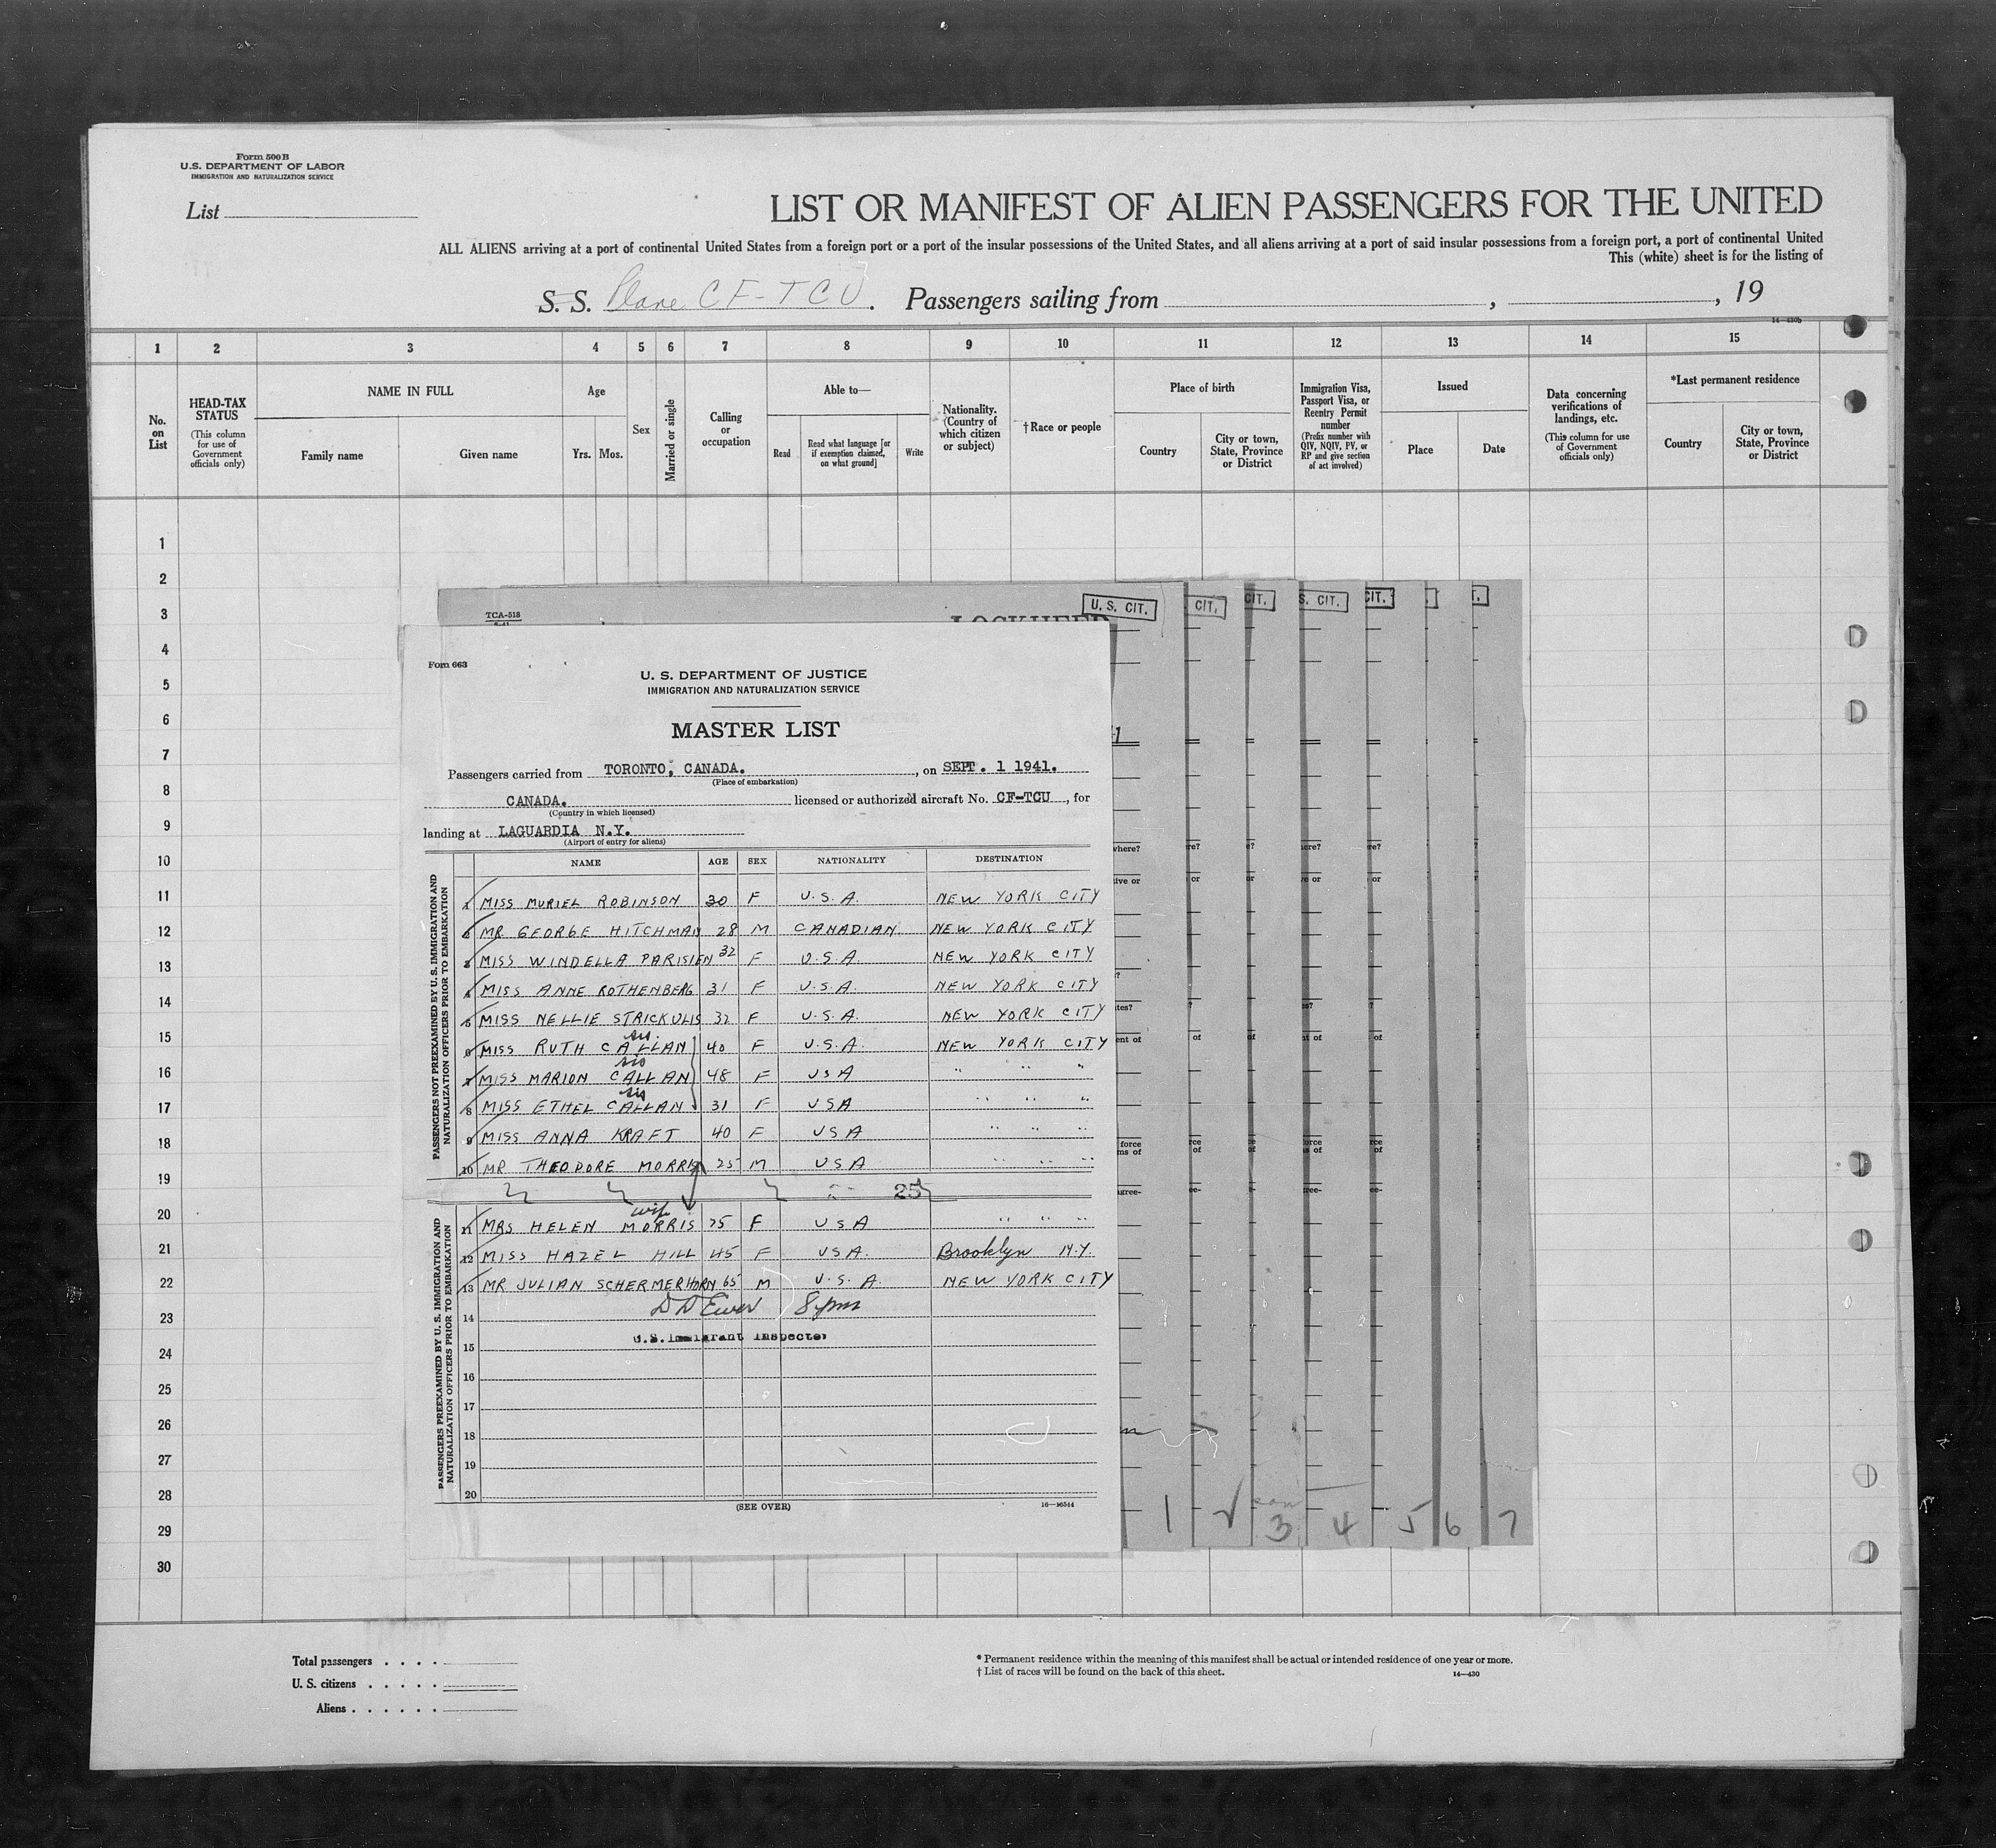 Form 500 B
U.S. DEPARTMENT OF LABOR
IMMIGRATION AND NATURALIZATION SERVICE
List
LIST OR MANIFEST OF ALIEN PASSENGERS FOR THE UNITED
ALL ALIENS arriving at a port of continental United States from a foreign port or a port of the insular possessions of the United States, and all aliens arriving at a port of said insular possessions from a foreign port, a port of continental United
This (white) sheet is for the listing of
S. S. Plane CF-TCU. Passengers sailing from , , 19
14—430b
1 2 3 4 5 6 7 8 9 10 11 12 13 14 15
No. on List
HEAD-TAX STATUS
(This column for use of Government officials only)
NAME IN FULL
Family name Given name
Age
Yrs. Mos.
Sex
Married or single
Calling or occupation
Able to—
Read
Read what language [or if exemption claimed, on what ground]
Write
Nationality. (Country of which citizen or subject)
†Race or people
Place of birth
Country
City or town, State, Province or District
Immigration Visa, Passport Visa, or Reentry Permit number
(Prefix number with QIV, NQIV, PV, or RP and give section of act involved)
Issued
Place Date
Data concerning verifications of landings, etc.
(This column for use of Government officials only)
*Last permanent residence
Country
City or town, State, Province or District
1
2
3
4
5
6
7
8
9
10
11
12
13
14
15
16
17
18
19
20
21
22
23
24
25
26
27
28
29
30
TCA-518
LOCKHEED
U. S. CIT.
CIT.
CIT.
S. CIT.
CIT.
Form 663
U. S. DEPARTMENT OF JUSTICE
IMMIGRATION AND NATURALIZATION SERVICE
MASTER LIST
Passengers carried from TORONTO, CANADA. , on SEPT. 1 1941.
(Place of embarkation)
CANADA. licensed or authorized aircraft No. CF-TCU , for
(Country in which licensed)
landing at LAGUARDIA N.Y.
(Airport of entry for aliens)
NAME AGE SEX NATIONALITY DESTINATION
PASSENGERS NOT PREEXAMINED BY U. S. IMMIGRATION AND NATURALIZATION OFFICERS PRIOR TO EMBARKATION
1 MISS MURIEL ROBINSON 30 F U.S.A. NEW YORK CITY
2 MR GEORGE HITCHMAN 28 M CANADIAN. NEW YORK CITY
3 MISS WINDELLA PARISIEN 32 F U.S.A NEW YORK CITY
4 MISS ANNE ROTHENBERG 31 F U.S.A. NEW YORK CITY
5 MISS NELLIE STRICKULIS 32 F U.S.A. NEW YORK CITY
sis.
6 MISS RUTH CALLAN 40 F U.S.A. NEW YORK CITY
sis
7 MISS MARION CALLAN 48 F USA " " "
sis
8 MISS ETHEL CALLAN 31 F USA " " "
9 MISS ANNA KRAFT 40 F USA " " "
10 MR THEODORE MORRIS 25 M USA " " "
25
PASSENGERS PREEXAMINED BY U. S. IMMIGRATION AND NATURALIZATION OFFICERS PRIOR TO EMBARKATION
wife
11 MRS HELEN MORRIS 25 F USA " " "
12 MISS HAZEL HILL 45 F USA. Brooklyn N.Y.
13 MR JULIAN SCHERMERHORN 65 M U.S.A. NEW YORK CITY
14
U.S. Immigrant Inspector
15
16
17
18
19
20
(SEE OVER)
16—16544
where?
force
ms of
agree-
1 2 3 4 5 6 7
Total passengers . . . .
U. S. citizens . . . . .
Aliens . . . . . .
* Permanent residence within the meaning of this manifest shall be actual or intended residence of one year or more.
† List of races will be found on the back of this sheet.
14—430